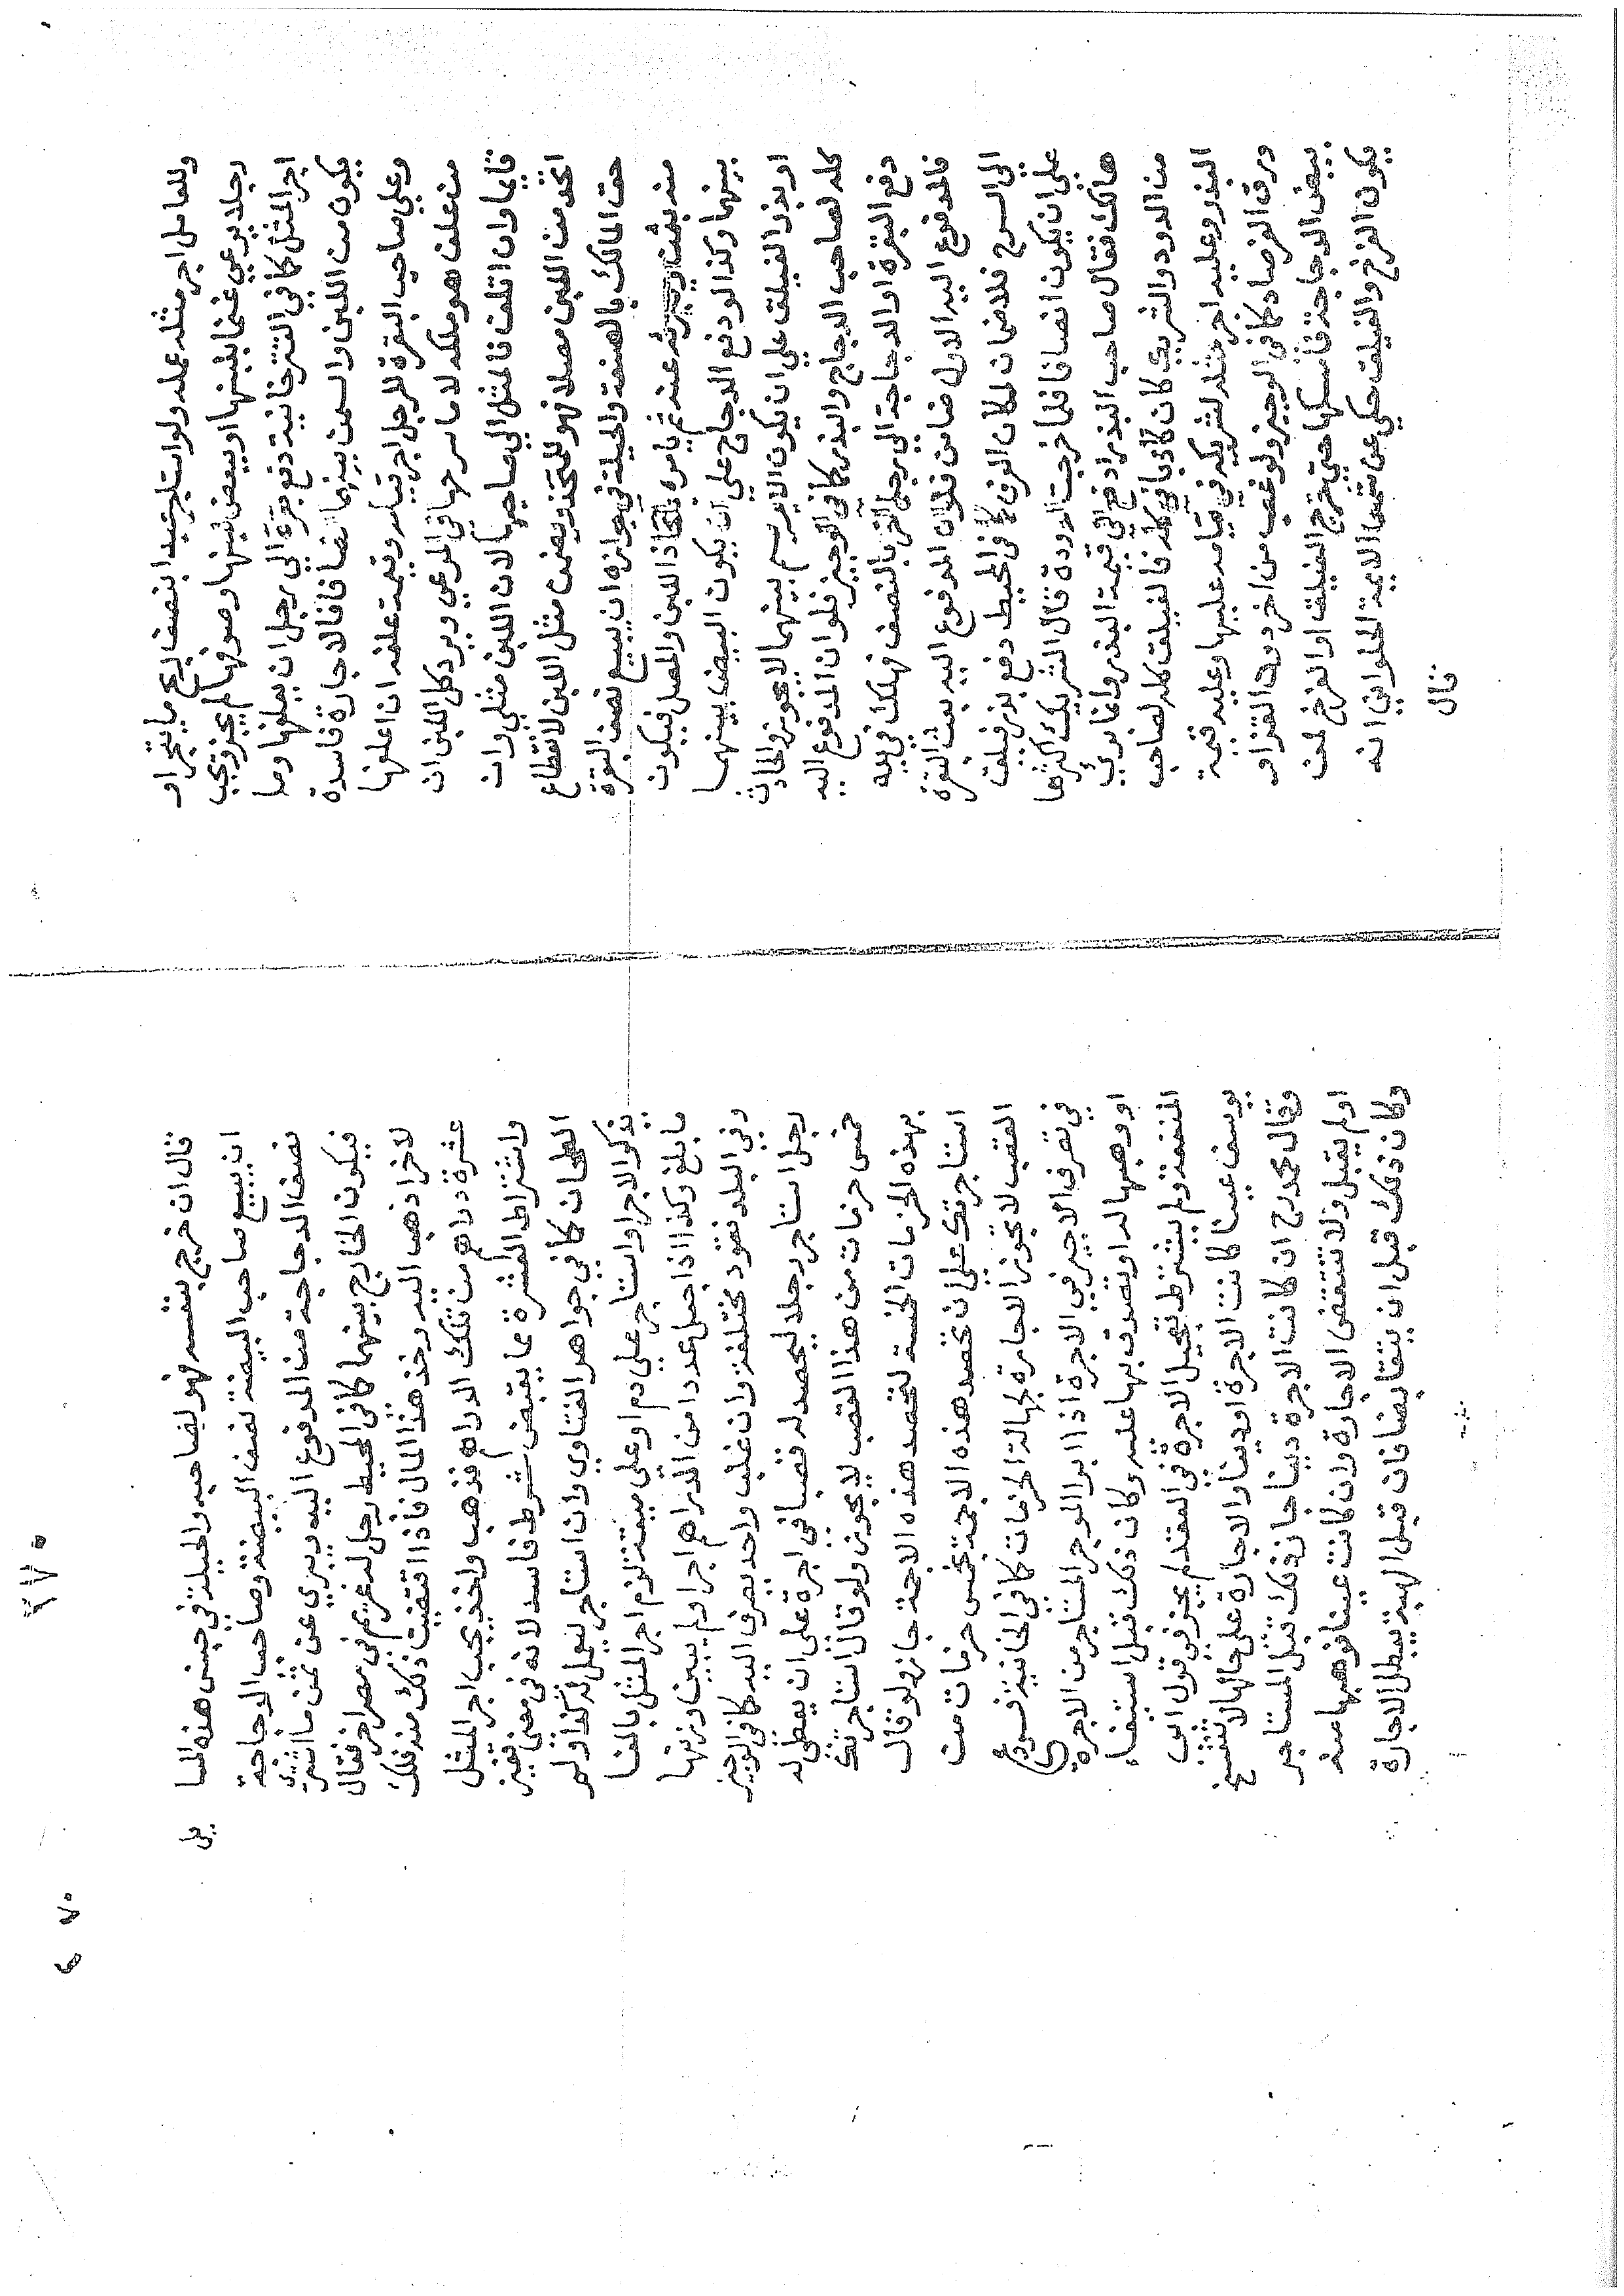 وللعامل اجر مثله عمله ولو استاجر عبدا بنصف ربح ما يتجر او
رجلا يرعي غنما بلبنها او ببعض لبنها وصوفها لم يجز ويجب
اجر المثل كما في التترخانية دفع بقرة الي رجل ان يعلفها وما
يكون من اللبن والسمن بينهما نصافا فالاجارة فاسدة
وعلي صاحب البقرة للرجل اجر قيامه وقيمة علفه ان اعلفها
من علف هو ملكه لا ما سرحها في المرعي ويرد كل اللبن ان
قايما وان اتلف فالمثل الي صاحبها لان اللبن مثلي وان
اتخذ من اللبن مصلا فهو للمتخذ ويضمن مثل اللبن لانقطاع
حق المالك بالصنعة والحيلة في جوازه ان يبيع نصف البقرة
منه بثمن ويبرئه عنه ثم يامره باتخاذ اللبن والمصل فيكون
بينهما وكذا لو دفع الدجاج علي ان يكون البيض بينهما
او بذر الفيلق علي ان يكون الابريسم بينهما لا يجوز والحادث
كله لصاحب الدجاج والبذر كما في الوجيز فلو ان المدفوع اليه
دفع البقرة او الدجاجة الي رجل اخر بالنصف فهلك في يده
فالمدفوع اليه الاول ضامن فلو ان المدفوع اليه بعث البقرة
الي السرح فلا ضمان لمكان العرف كما في المحيط دفع بذر فيلق
علي ان يكون انصافا فلما خرجت الدودة قال الشريك اكثرها
هالك فقال صاحب البذر ادفع الي قيمة البذر وانا بري
من الدود والشريك كان كاذبا في كله فالفيلق كله لصاحب
البذر وعليه اجر مثله لشريكه في قيامه عليها وعليه قيمة
ورق الفرصاد كما في الوجيز ولو غصب من اخر دود القز او
بيض الدجاجة فامسكها حتي خرج الفيلق او الفرخ لمن
يكون الفرخ والفيلق حكي عن شمس الايمة الحلواني انه
قال
قال ان خرج بنفسه فهو لصاحبه والحيلة في جنس هذه المسا
ئل
ان يبيع صاحب البيضة نصف البيضة وصاحب الدجاجة
نصف الدجاجة من المدفوع اليه ويبري عن ثمن ما اشتراه
فيكون الخارج بينهما كما في المحيط رجل له غريم في مصر اخر فقال
لاخر اذهب اليه وخذ هذا المال فاذا اقتضيت ذلك منه فلك
عشرة دراهم من تلك الدراهم فذهب واخذ يجب اجر المثل
واشتراط العشرة مما يقبض شرط فاسد لانه في معني قفيز
الطحان كما في جواهر الفتاوي وان استاجر ليعمل له كذا ولم
يذكر الاجر او استاجر علي دم او علي ميتة لزم اجر المثل بالغا
ما بلغ وكذا اذا جعل عددا من الدراهم اجرا ولم يبين وزنها
وفي البلد نقود مختلفة وان غلب واحد يصرف اليه كما في الوجيز
رجل استاجر رجلا ليحصد له قصبا في اجرة علي ان يعطي له
خمس حزمات من هذا القصب لا يجوز ولو قال استاجرتك
بهذه الحزمات الخمسة لتحصد هذه الاجمة جاز ولو قال
استاجرتك علي ان تحصد هذه الاجمة بخمس حزمات من
القصب لا تجوز الاجارة لجهالة الحزمات كما في الخانية فروع
في تصرف الاجير في الاجرة اذا ابرا الموجر المستاجر من الاجرة
او وهبها له او تصدق بها عليه وكان ذلك قبل استيفاء
المنفعة ولم يشترط تعجيل الاجرة في العقد لم يجز في قول ابي
يوسف عينا كانت الاجرة او دينا والاجارة علي حالها لا تنفسخ
وقال محمد رح ان كانت الاجرة دينا جاز ذلك قبل المستاجر
او لم يقبل ولا تنتقض الاجارة وان كانت عينا فوهبها منه
وكان ذلك قبل ان يتقابضا فان قبل الهبة تبطل الاجارة